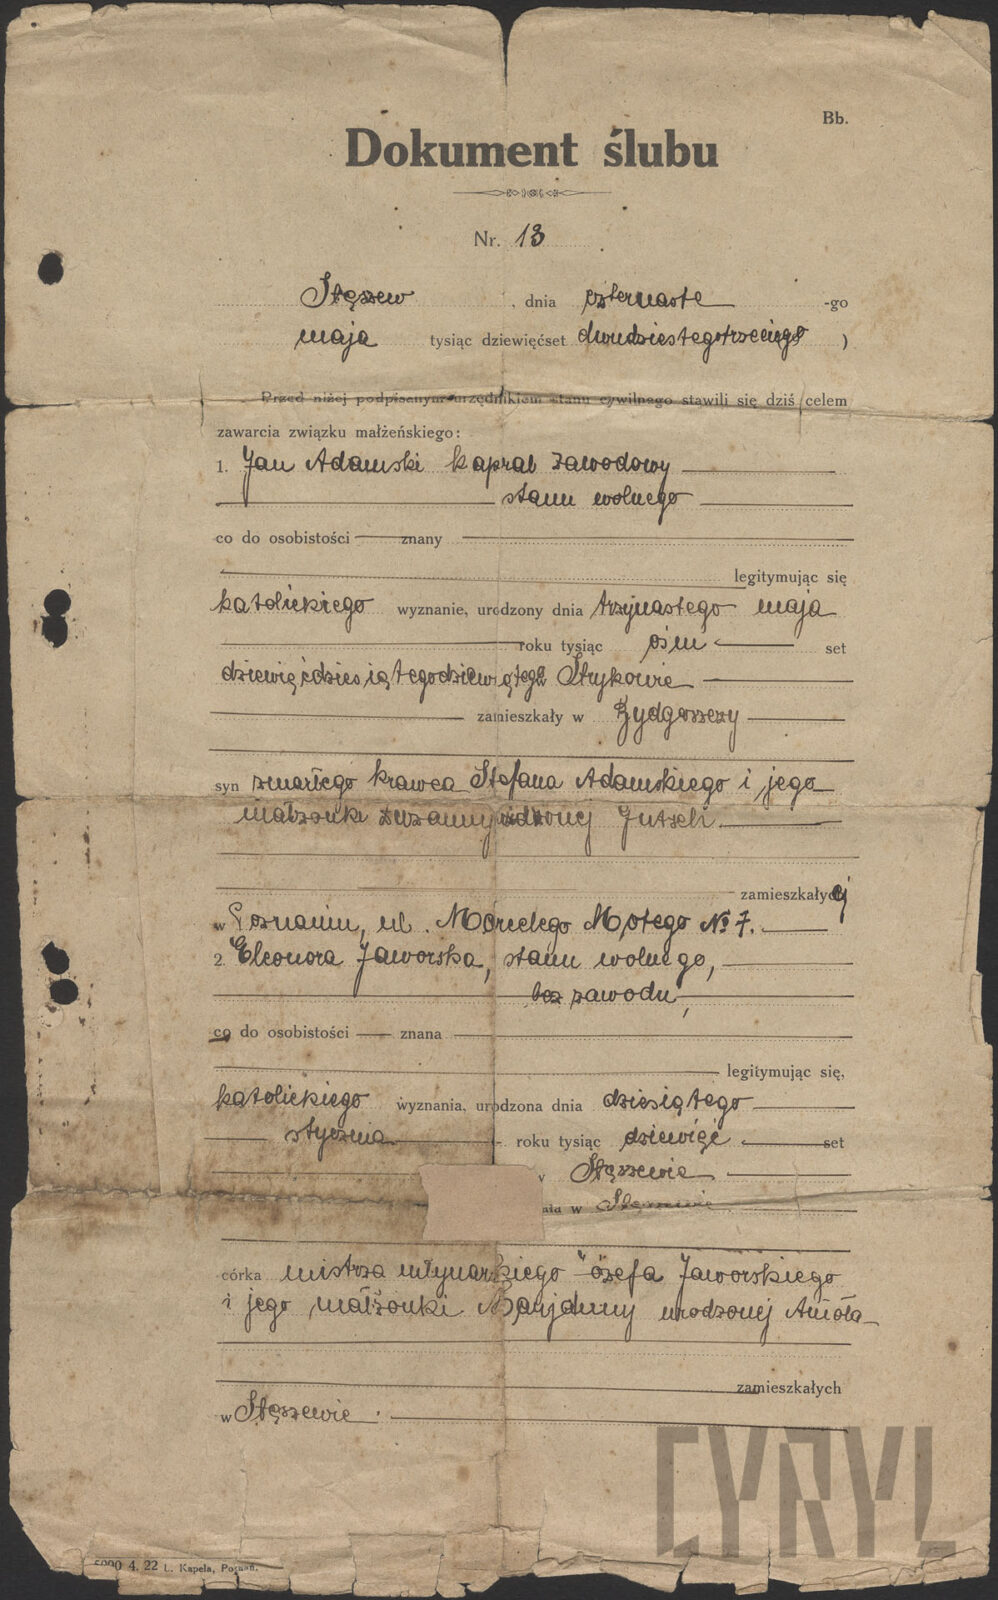 Bb.
Dokument ślubu
Nr. 13
Stęszew, dnia czternaste -go
maja tysiąc dziewięćset dwudziestegotrzeciego )
Przed niżej podpisanym urzędnikiem stanu cywilnego stawili się dziś celem
zawarcia związku małżeńskiego:
1. Jan Adamski kapral zawodowy
stanu wolnego
co do osobistości znany
legitymując się
katolickiego wyznanie, urodzony dnia trzynastego maja
roku tysiąc ośm set
dziewięćdziesiątegodziewiątego w Strykowie
zamieszkały w Bydgoszczy
syn zmarłego krawca Stefana Adamskiego i jego
małżonki Zuzanny
zamieszkałych
w Poznaniu, ul. No 7.
2. Eleonora Jaworska, stanu wolnego,
bez zawodu,
co do osobistości znana
legitymując się,
katolickiego wyznania, urodzona dnia dziesiątego
stycznia roku tysiąc dziewięć set
w Stęszewie
ała w Stęszewie
córka mistrza młynarskiego Józefa Jaworskiego
i jego małżonki urodzonej Anioła
zamieszkałych
w Stęszewie.
5000 4. 22 L. Kapela, Poznań.
CYRYL